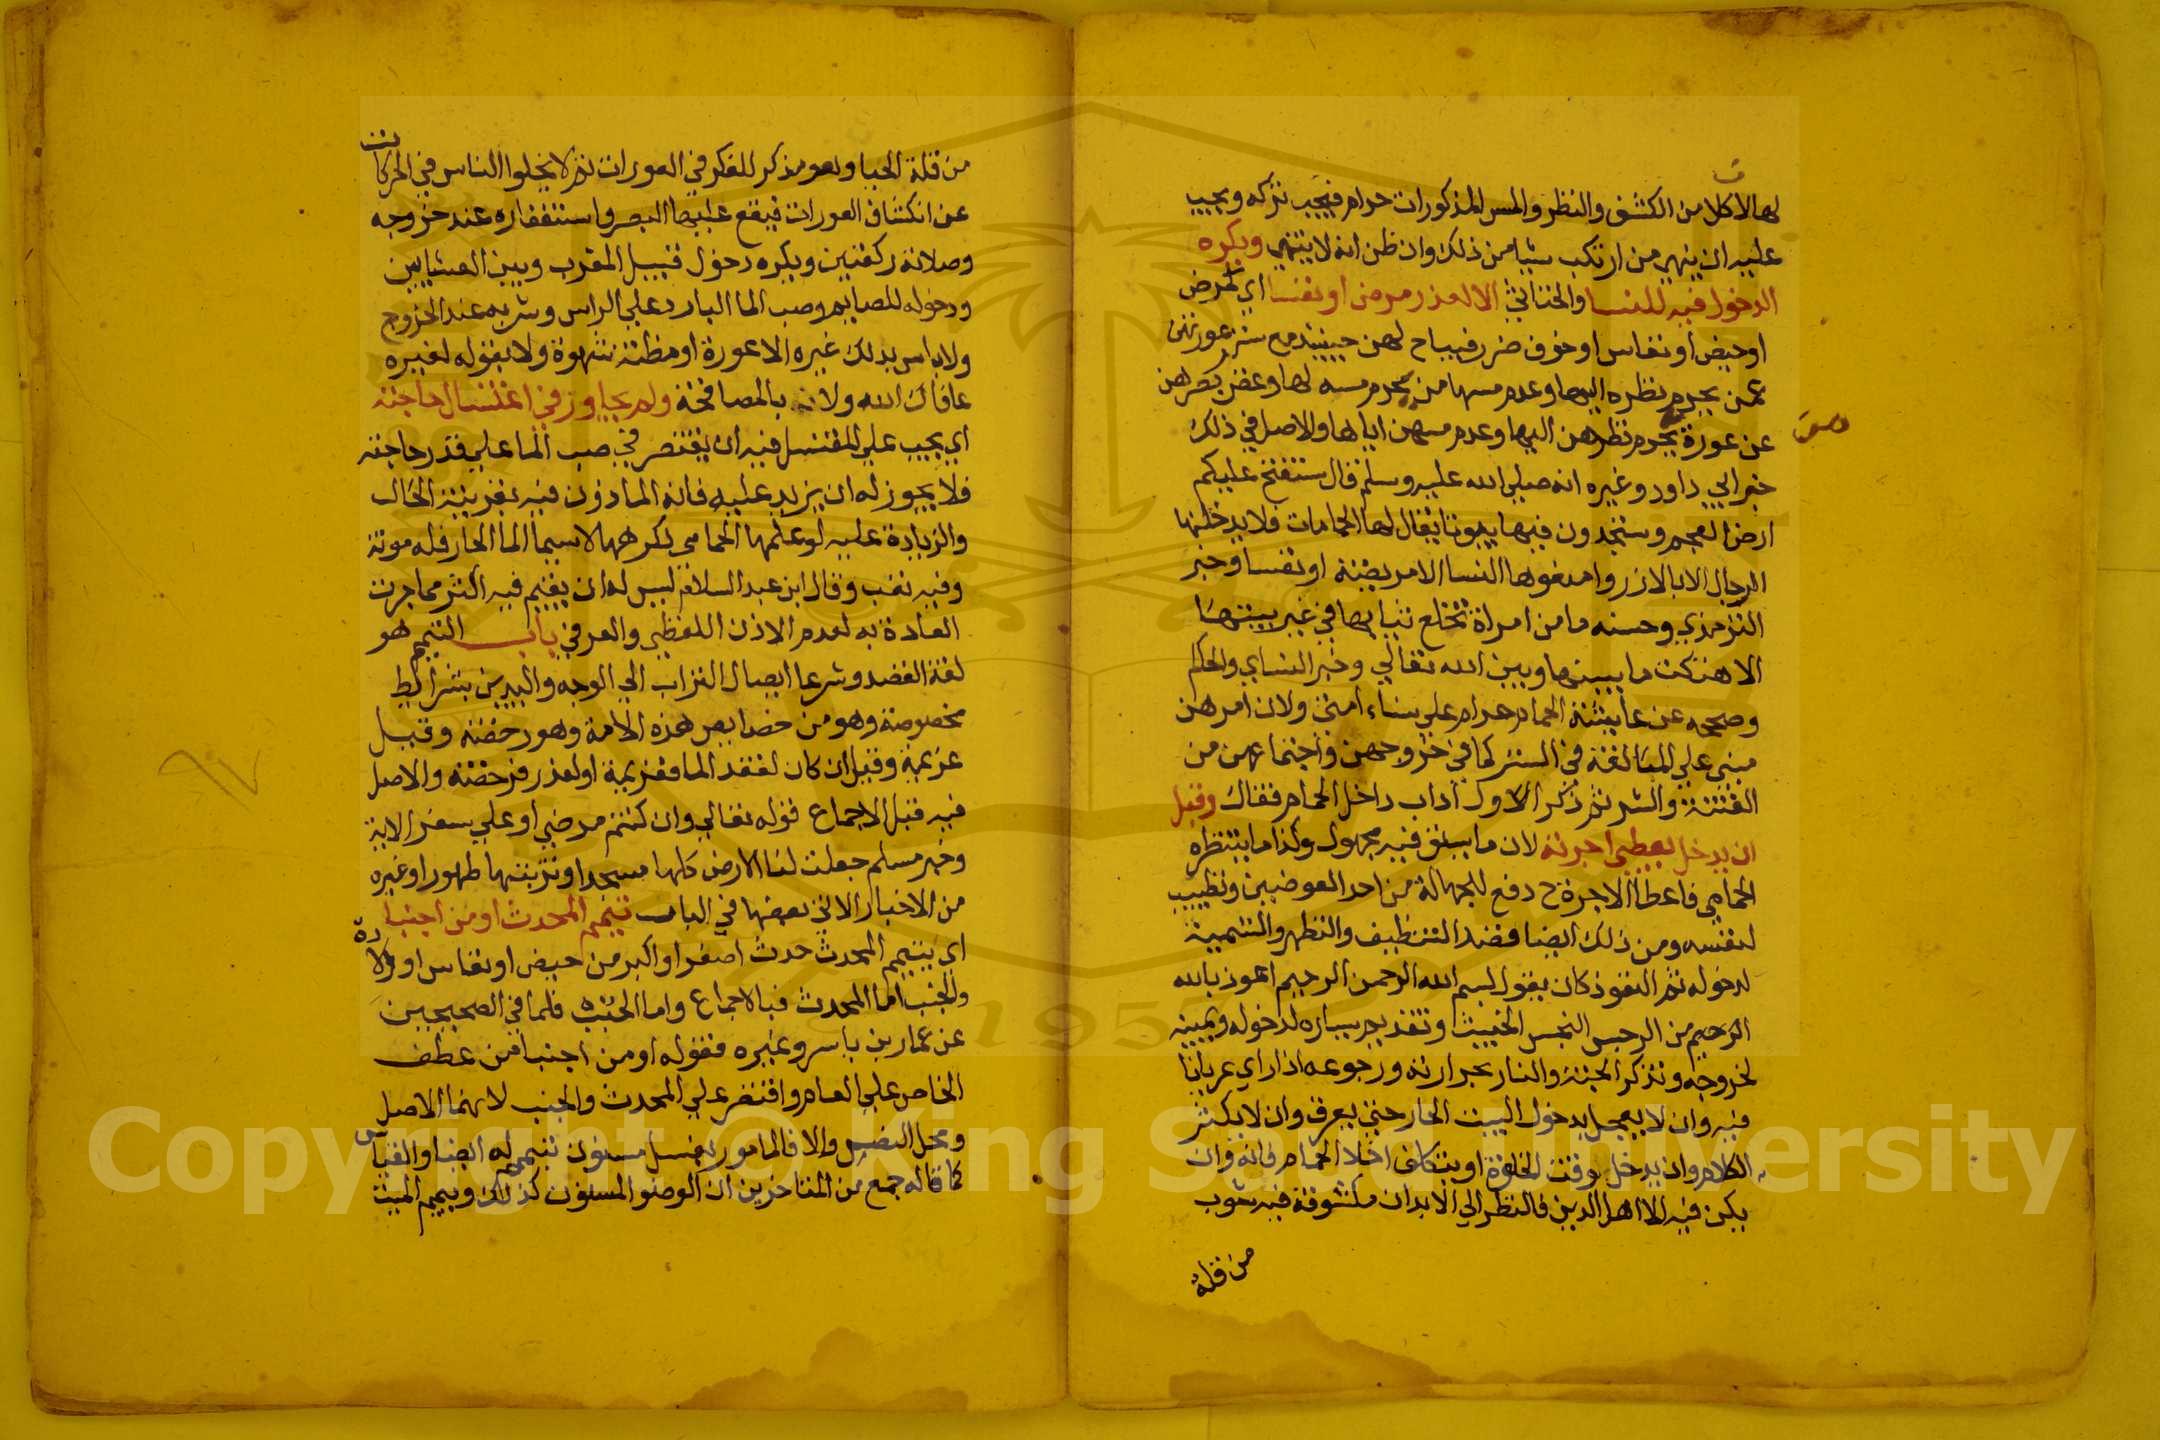 لها اذ كلا من الكشف والنظر والمس المذكورات حرام فيجب تركه ويجب
عليه ان ينهي من ارتكب شيا من ذلك وان ظن انه لا ينتهي ويكره
الدخول فيه للنسا والخناثي الا لعذر مرض او نفسا اي لمرض
او حيض او نفاس او خوف ضرر فيباح لهن حينيذ مع ستر عورتهن
عمن يحرم نظره اليها وعدم مسها من يحرم مسه لها وغض بصرهن
عن عورة يحرم نظرهن اليها وعدم مسهن اياها والاصل في ذلك
خبر ابي داود وغيره انه صلي الله عليه وسلم قال ستفتح عليكم
ارض العجم وستجدون فيها بيوتا يقال لها الحمامات فلا يدخلنها
الرجال الا بالازر وامنعوها النسا الا مريضة او نفسا وخبر
الترمذي وحسنه ما من امراة تخلع ثيابها في غير بيتها
الا هتكت ما بينها وبين الله تعالي وخبر النساي والحاكم
وصححه عن عايشة الحمام حرام علي نساء امتي ولان امرهن
مبني علي المبالغة في الستر كما في خروجهن واجتماعهن من
الفتنة والشر ثم ذكر الاول آداب داخل الحمام فقال وقبل
ان يدخل يعطي اجرته لان ما يستوفيه مجهول وكذا ما ينتظره
الحمامي فاعطا الاجرة ح دفع للجهالة من احد العوضين وتطييب
لنفسه ومن ذلك ايضا قصد التنظيف والتطهر والتسمية
لدخوله ثم التعوذ كان يقول بسم الله الرحمن الرحيم اعوذ بالله
من الرجس النجس الخبيث وتقديم يساره لدخوله ويمينه
لخروجه وتذكر الجنة والنار بحرارته ورجوعه اذا راي عريانا
فيه وان لا يعجل بدخول البيت الحار حتي يعرق وان لا يكثر
الكلام وان يدخل وقت الخلوة او يتكلف اخلا الحمام فانه وان
يكن فيه الا اهل الدين فالنظر الي الابدان مكشوفة فيه شوب
من قلة
من قلة الحيا وهو مذكر للفكر في العورات ثم لا يخلوا الناس في الحركات
عن انكشاف العورات فيقع عليها البصر واستغفاره عند خروجه
وصلاته ركعتين ويكره دخول قبيل المغرب وبين العشايين
ودخوله للصايم وصب الما البارد علي الراس وشربه عند الخروج
ولا باس بدلك غيره الا عورة او مظنة شهوة ولا بقوله لغيره
عافاك الله ولا بالمصافحة ولم يجاوز في اغتسال حاجته
اي يجب علي المغتسل فيه ان يقتصر في صب الما علي قدر حاجته
فلا يجوز له ان يزيد عليه فانه الماذون فيه بقرينة الحال
والزيادة عليه لو علمها الحمامي لكرهها لا سيما الما الحار فله مونة
وفيه تعب وقال ابن عبد السلام ليس له ان يقيم فيه اكثر مما جرت
العادة به لعدم الاذن اللفظي والعرفي باب التيمم هو
لغة القصد وشرعا ايصال التراب الي الوجه واليدين بشرايط
مخصوصة وهو من خصايص هذه الامة وهو رخصة وقيل
عزيمة وقيل ان كان لفقد الما فعزيمة او لعذر فرخصة والاصل
فيه قبل الاجماع قوله تعالي وان كنتم مرضي او علي سفر الاية
وخبر مسلم جعلت لنا الارض كلها مسجدا وتربتها طهورا وغيره
من الاخبار الاتي بعضها في الباب تيمم المحدث او من اجنبا
اي يتيمم المحدث حدث اصغر او اكبر من حيض او نفاس او ولادة
والجنب اما المحدث فبالاجماع واما الجنب فلما في الصحيحين
عن عمار بن ياسر وغيره فقوله او من اجنبا من عطف
الخاص علي العام واقتصر علي المحدث والجنب لانهما الاصل
ومحل النص والا فالمامور بغسل مسنون تيمم له ايضا والقياس
كما قاله جمع من المتاخرين ان الوضو المسنون كذلك وييمم الميت
Copyright © King Saud University
1957